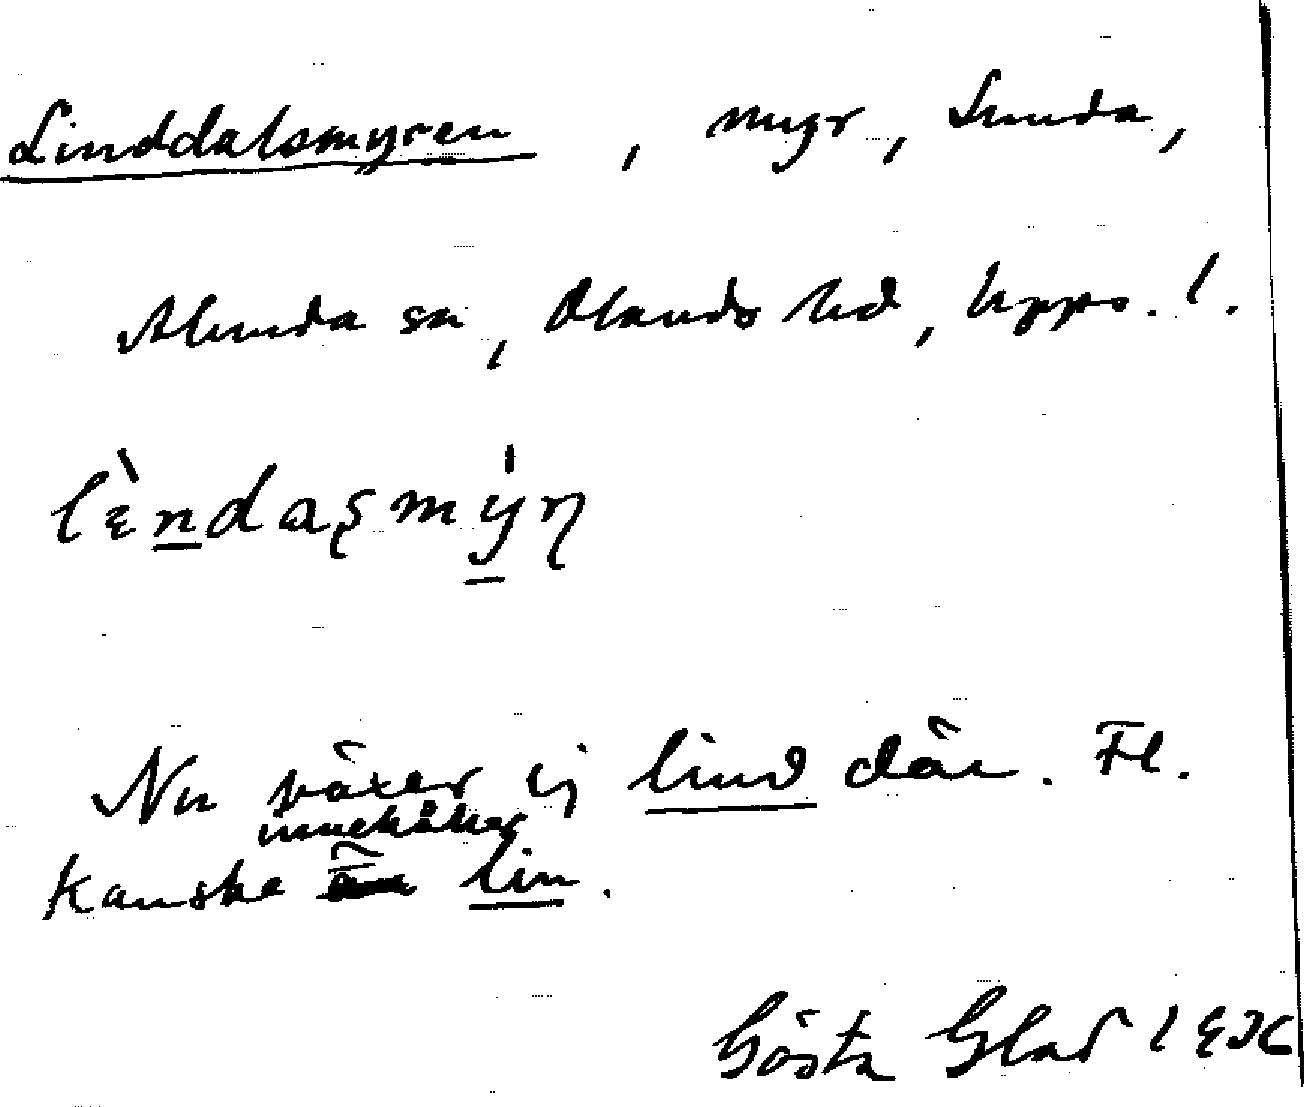 Linddalsmyren, myr, Sunda,
Alunda sn, Olands hd, Upps. l.
lɛ̀ndaʂmýn
Nu växer ej lind där. Fl.
innehåller
Kanske lin.
Gösta